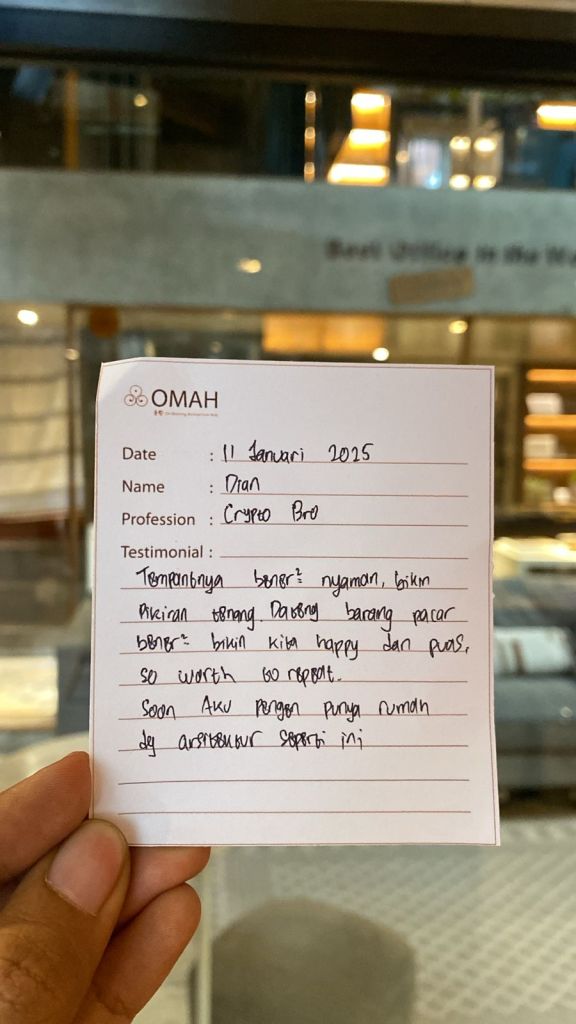 Best Office in the
OMAH
Date : 11 Januari 2025
Name : Dian
Profession : Crypto Bro
Testimonial :
Tempatnya bener² nyaman, bikin
pikiran tenang. Dateng bareng pacar
bener² bikin kita happy dan puas,
so worth to repeat.
Soon Aku pengen punya rumah
dg arsitektur seperti ini